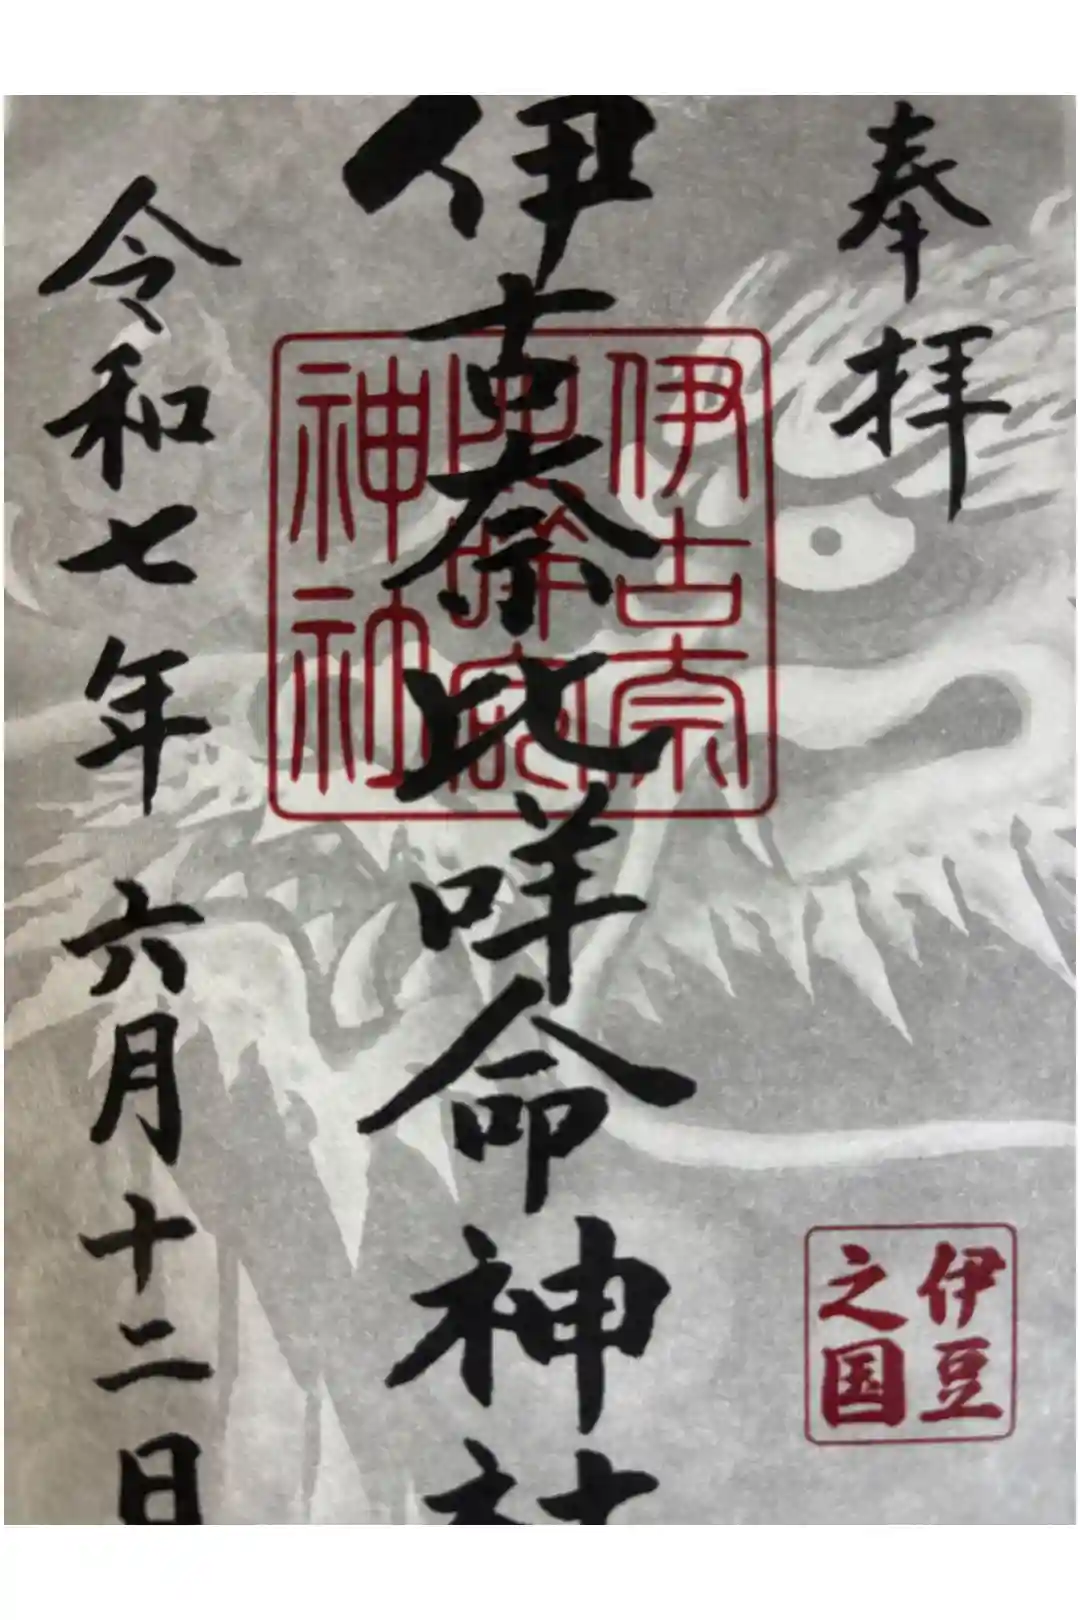 奉拝
伊古奈比咩命神社
令和七年六月十二日
伊古奈
比咩命
神社
伊豆
之国